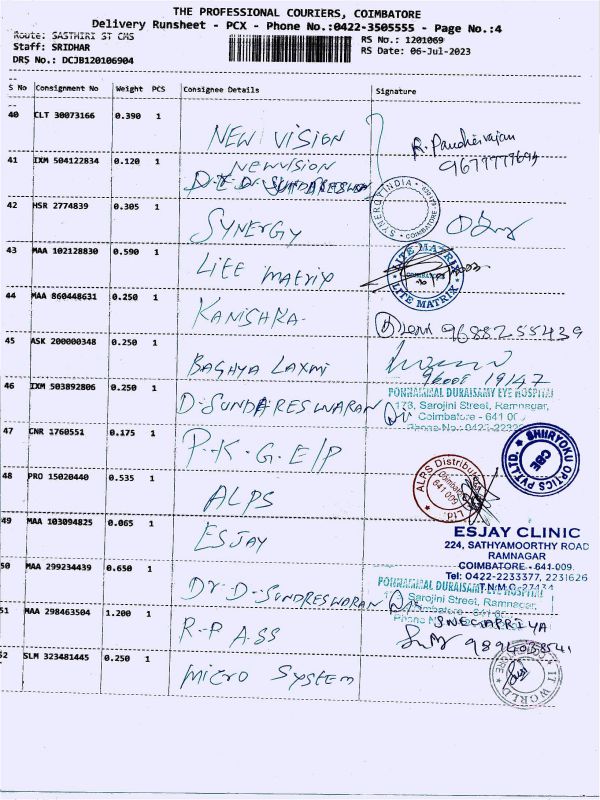 THE PROFESSIONAL COURIERS, COIMBATORE
Delivery Runsheet - PCX - Phone No.:0422-3505555 - Page No.:4
Route: SASTHIRI ST CMS
RS No.: 1201069
Staff: SRIDHAR
RS Date: 06-Jul-2023
DRS No.: DCJB120106904
S No Consignment No Weight PCS Consignee Details Signature
40 CLT 30073166 0.390 1 NEW VISION
R. Pandheirajan
41 IXM 504122834 0.120 1 NEWVISION
Dr. D. SUNDARESWARAN
SYNERGY INDIA COIMBATORE
42 HSR 2774839 0.305 1 SYNERGY
43 MAA 102128830 0.590 1 LITE MATRIX
LITE MATRIX LITE MATRIX
44 MAA 860448631 0.250 1 KANISHKA
9688255439
45 ASK 200000348 0.250 1 BAGHYA LAXMI
96008 19147
46 IXM 503892806 0.250 1 D. SUNDARESWARAN
PONNAMMAL DURAISAMY EYE HOSPITAL
173, Sarojini Street, Ramnagar,
Coimbatore - 641 00
Phone No.: 0422-2232
47 CNR 1760551 0.175 1 P.K.G.E/P
SHIIRYOKU OPTICS PVT.LTD. CBE
48 PRO 15020440 0.535 1 ALPS
ALRS Distribu Ltd. Coimbatore 641 009
49 MAA 103094825 0.065 1 ESJAY
ESJAY CLINIC
224, SATHYAMOORTHY ROAD
RAMNAGAR
COIMBATORE - 641-009
Tel: 0422-2233377, 2231626
T.N.M.C
50 MAA 299234439 0.650 1 Dr D. SUNDRESWARAN
PONNAMMAL DURAISAMY EYE HOSPITAL
Sarojini Street, Ramnagar,
Coimbatore - 641
Phone
51 MAA 298463504 1.200 1 R.P ASS
SNEGAPRIYA
9894038541
52 SLM 323481445 0.250 1 MICRO SYSTEM
IT WORLD